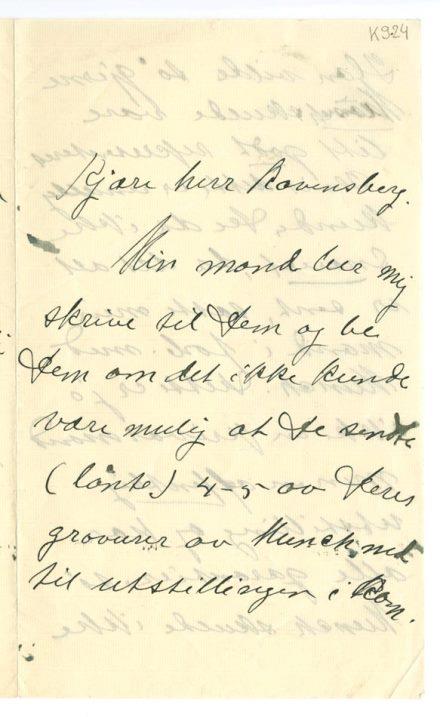 K924
Kjære herr Ravensberg.
Min mand ber mig
skrive til Dem og be
Dem om det ikke kunde
være mulig at De sendte
(lånte) 4-5 av Deres
gravurer av Munch ned
til utstillingen i Rom.